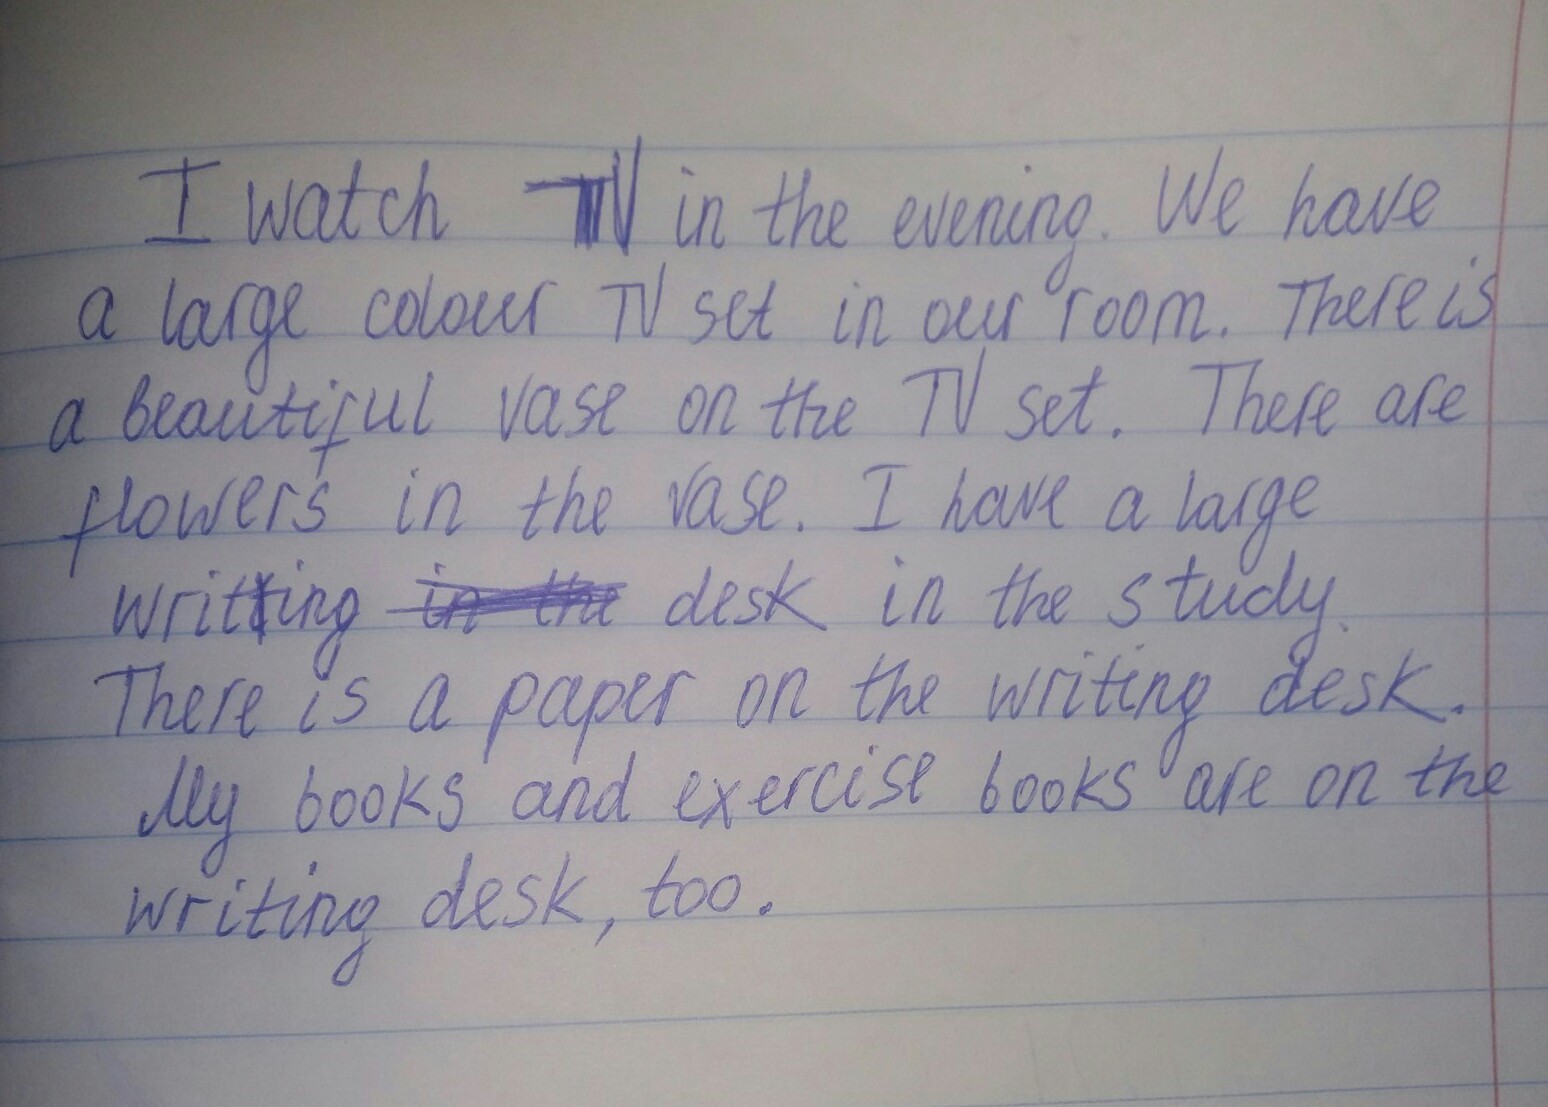 I watch TV in the evening. We have
a large colour TV set in our room. There is
a beautiful vase on the TV set. There are
flowers in the vase. I have a large
writing desk in the study.
There is a paper on the writing desk.
My books and exercise books are on the
writing desk, too.